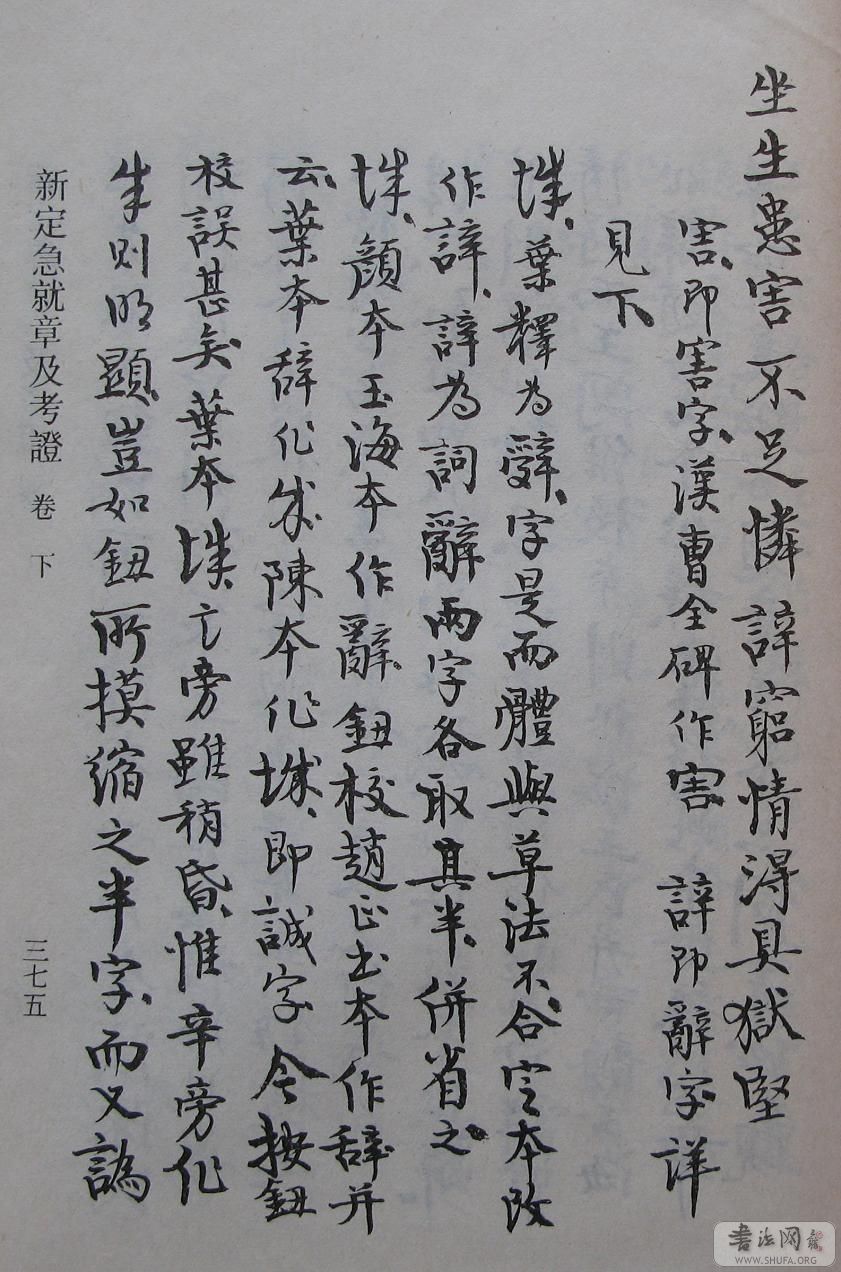 坐生患害不足憐辭窮情得具獄堅
害、即害字、漢曹全碑作害 辭即辭字、詳
見下、
葉釋為辭、字是而體與草法不合、定本改
作辭、辭為詞辭兩字各取其半、併省之、
顏本玉海本作辭、鈕校趙正書本作辞并
云、葉本辞作 陳本作城、即誠字、今按鈕
校誤甚矣、葉本 言旁雖稍昏、惟辛旁作
則明顯、豈如鈕所摸縮之半字、而又譌
新定急就章及考證 卷下
三七五
書法网
WWW.SHUFA.ORG